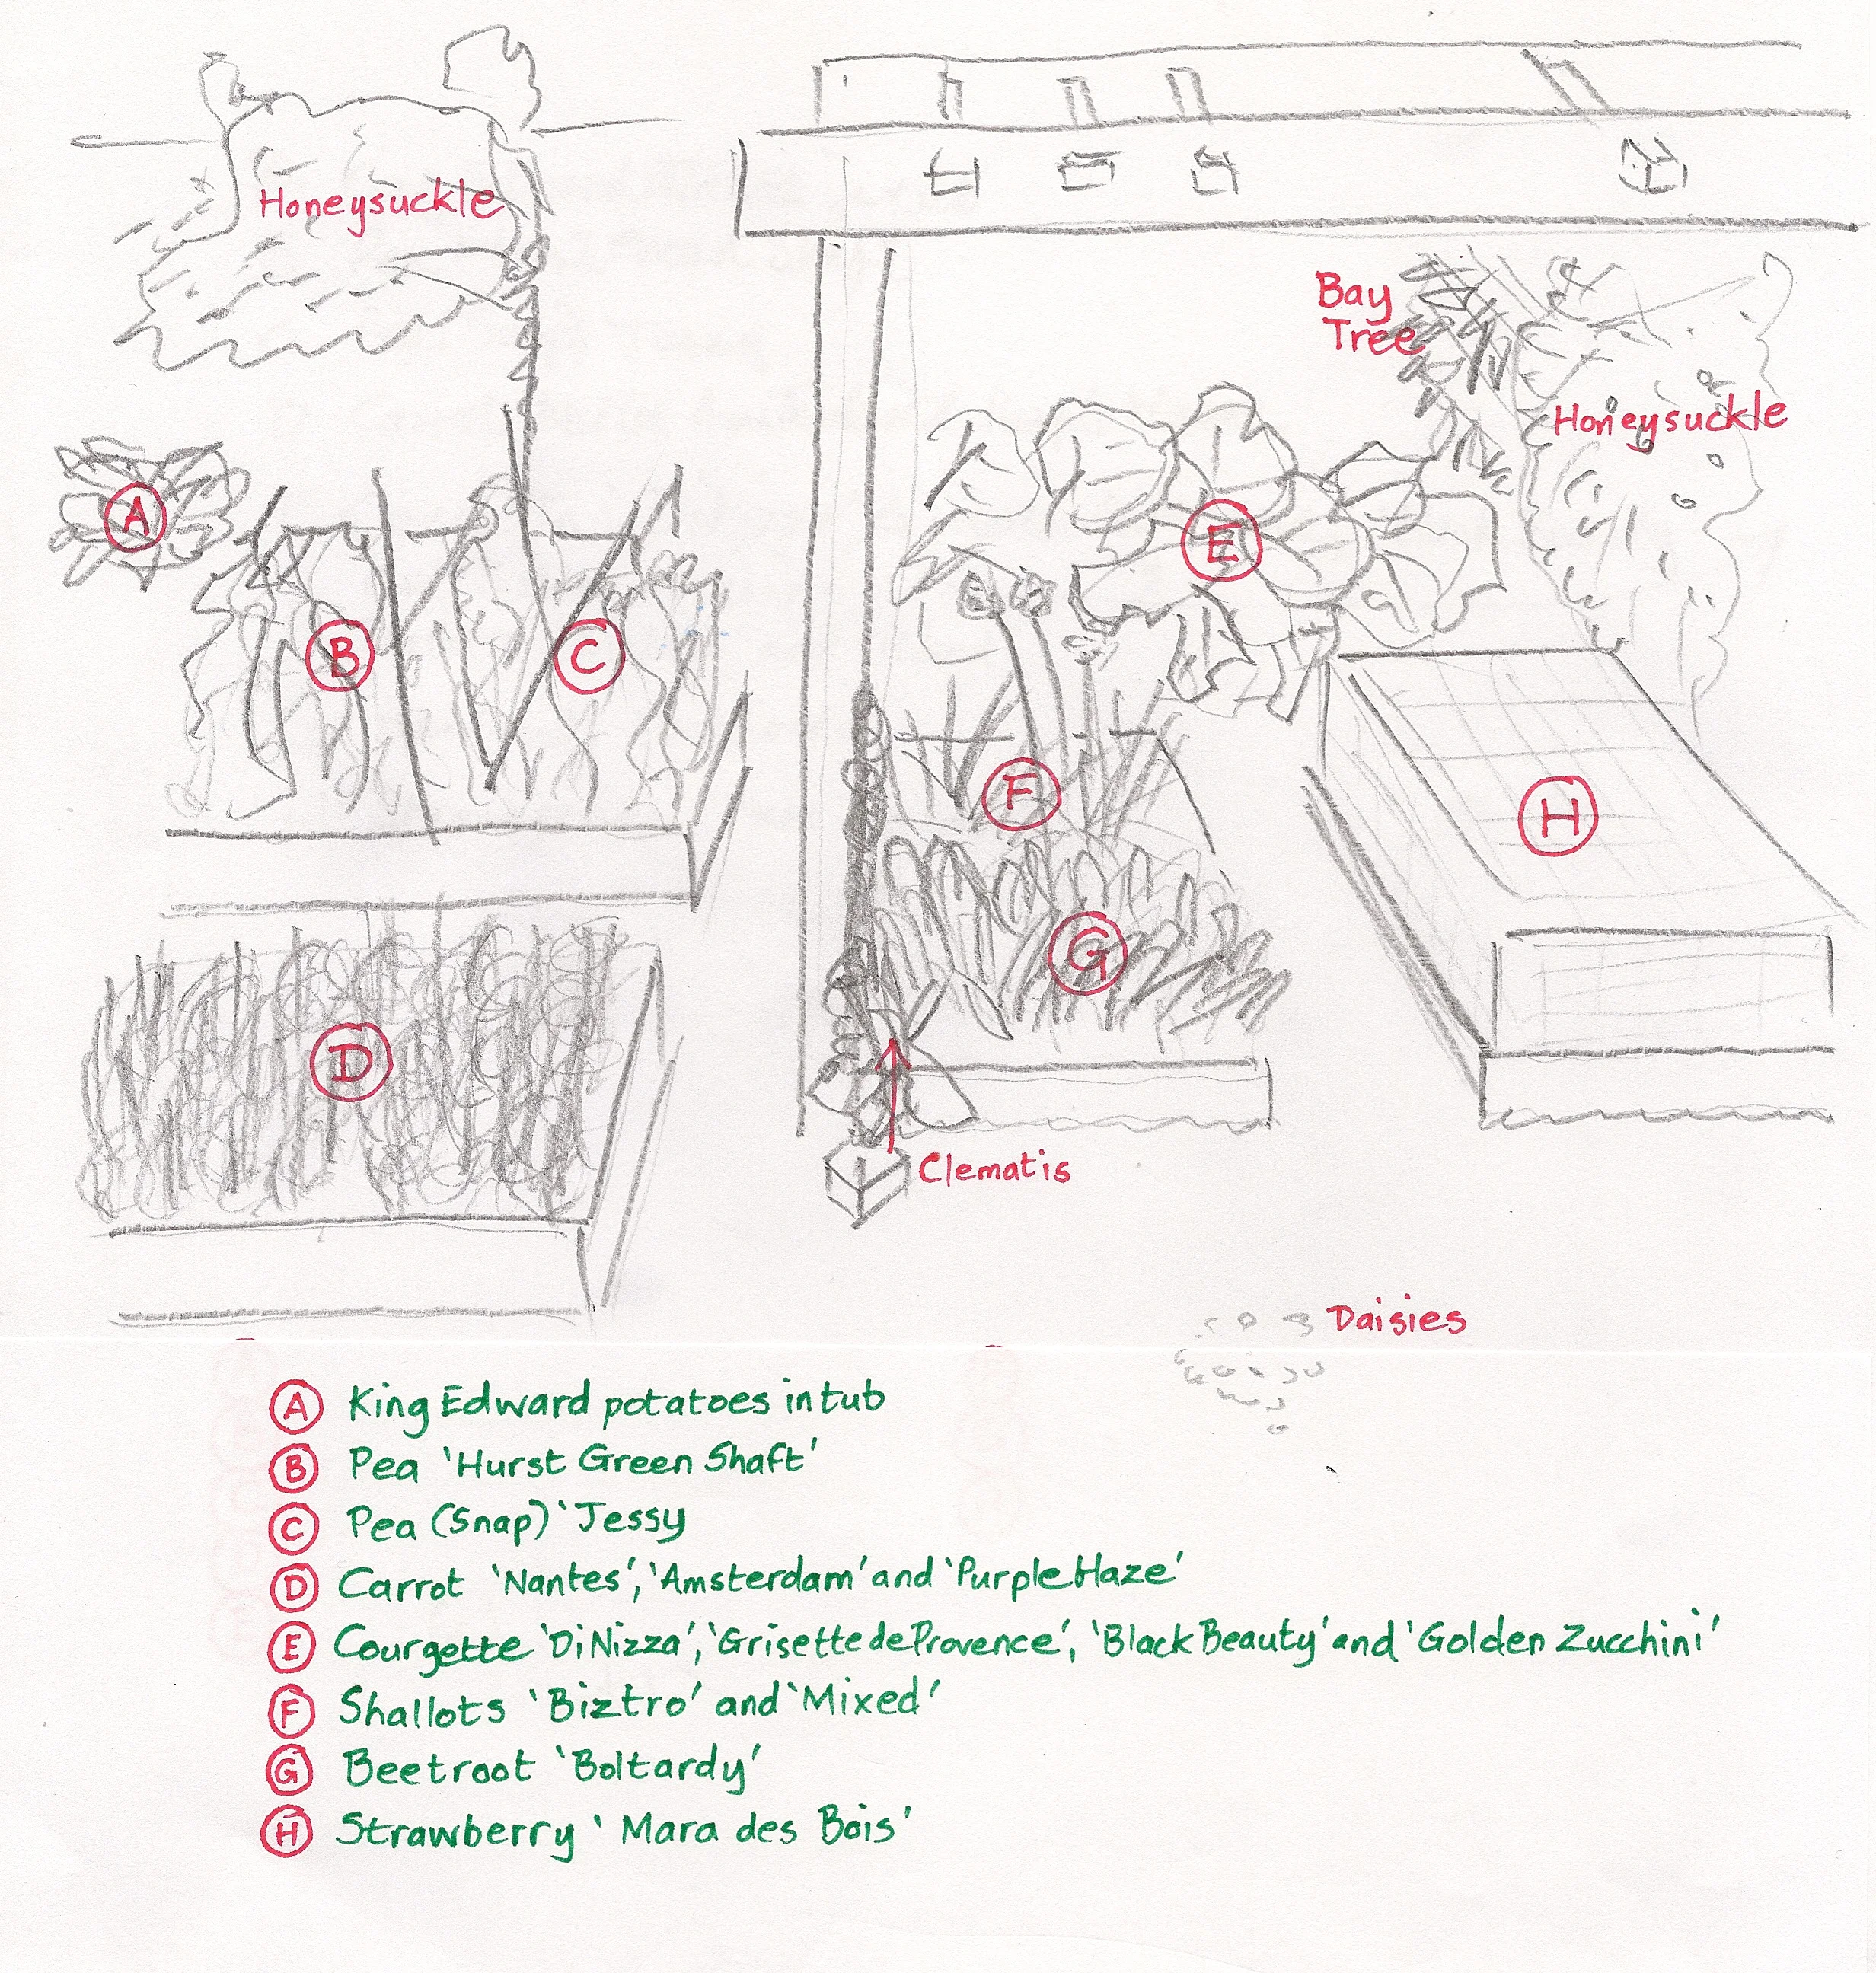 Honeysuckle
Bay
Tree
Honeysuckle
A
E
B
C
F
H
G
D
Clematis
Daisies
A King Edward potatoes in tub
B Pea 'Hurst Green Shaft'
C Pea (Snap) 'Jessy
D Carrot 'Nantes', 'Amsterdam' and 'Purple Haze'
E Courgette 'Di Nizza', 'Grisette de Provence', 'Black Beauty' and 'Golden Zucchini'
F Shallots 'Biztro' and 'Mixed'
G Beetroot 'Boltardy'
H Strawberry 'Mara des Bois'